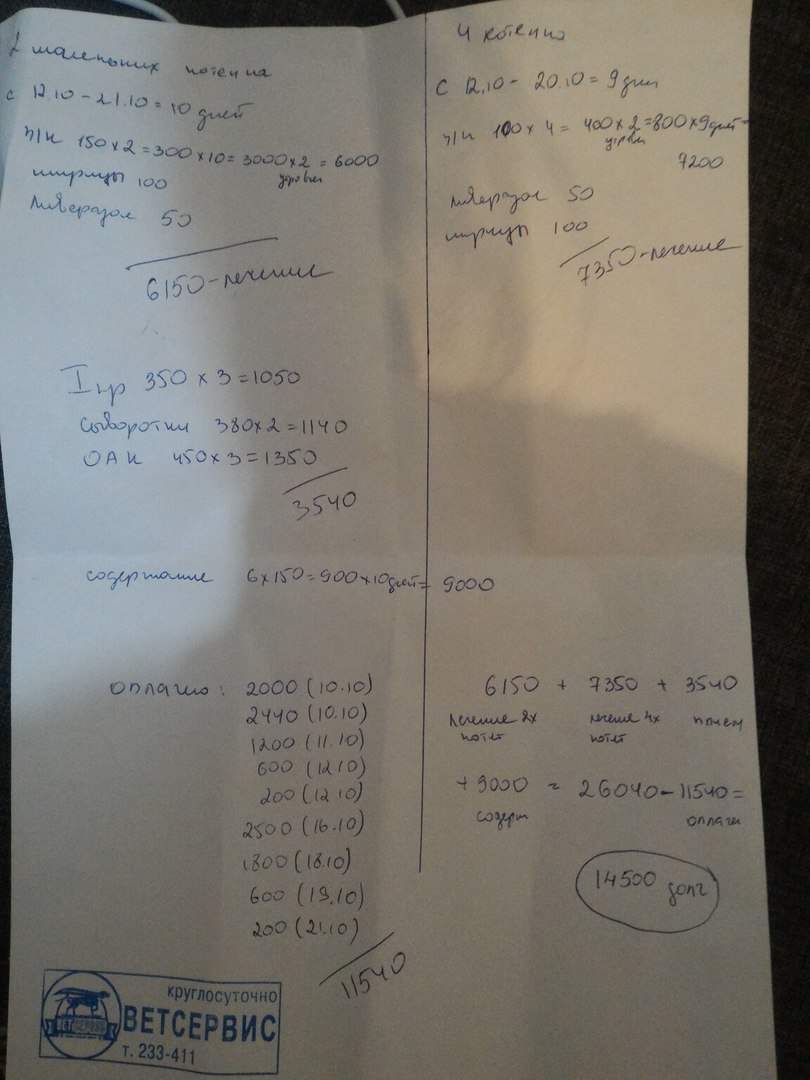 2 маленьких котенка
с 12.10 - 21.10 = 10 дней
п/к 150 x 2 = 300 x 10 = 3000 x 2 = 6000
уровн
шприцы 100
Ливеразол 50
6150 - лечение
4 котенка
С 12.10 - 20.10 = 9 дней
п/к 100 x 4 = 400 x 2 = 800 x 9 дней =
уровн
7200
Ливеразол 50
шприцы 100
7350 - лечение
I пр 350 x 3 = 1050
сыворотки 380 x 2 = 1140
ОАК 450 x 3 = 1350
3540
содержание 6 x 150 = 900 x 10 дней = 9000
оплачено: 2000 (10.10)
2440 (10.10)
1200 (11.10)
600 (12.10)
200 (12.10)
2500 (16.10)
1800 (18.10)
600 (19.10)
200 (21.10)
11540
6150 + 7350 + 3540
лечение 2х лечение 4х
котят котят
+ 9000 = 26040 - 11540 =
содерж оплачен
14500 долг
круглосуточно
ВЕТСЕРВИС
ВЕТСЕРВИС
т. 233-411